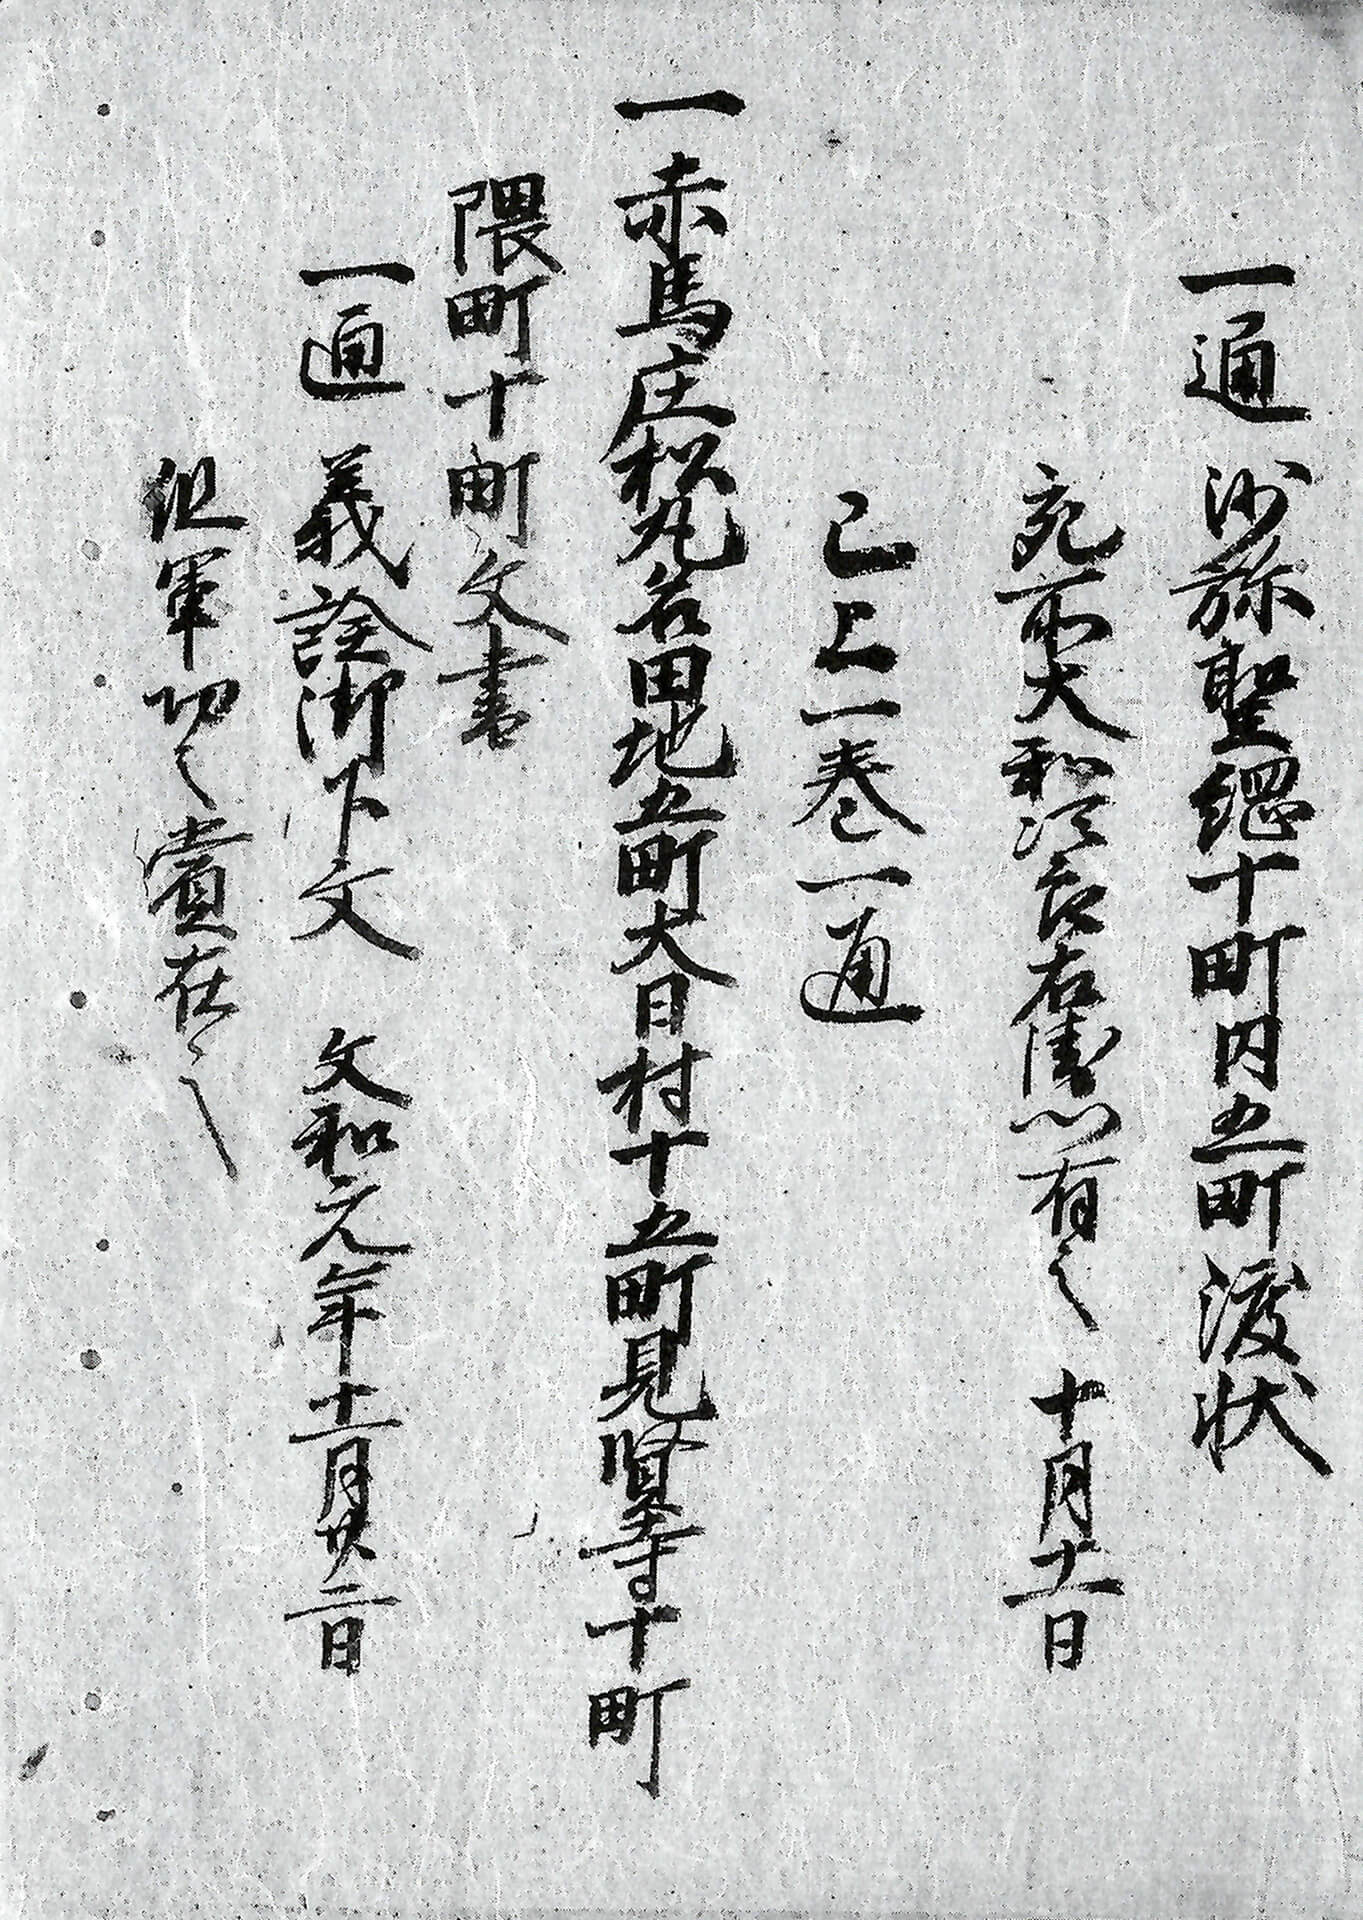 一通 沙弥聖綱十町内五町渡状
宛所大和次郎右衛門有之 十月十一日
已上一巻一通
一赤馬庄松丸名田地五町大日村十五町見賢寺十町
隈町十町文書
一通 義詮御下文 文和元年十一月廿二日
但軍功之賞在之